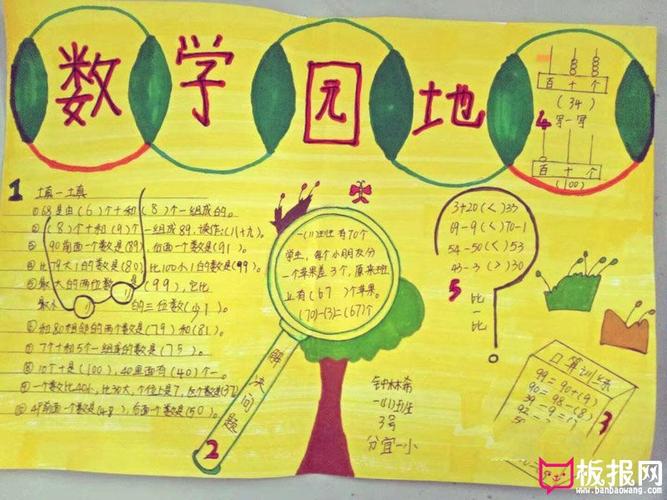 数学园地
百 十 个
(34)
4 写一写
百 十 个
(100)
1 填一填
①68是由(6)个十和(8)个一组成的。
②(8)个十和(9)个一组成89,读作:(八十九)。
③90前面一个数是(89),后面一个数是(91)。
④比79大1的数是(80),比100小1的数是(99)。
⑤最大的两位数是(99),它比
最小的三位数(少1)。
⑥和80相邻的两个数是(79)和(81)。
⑦7个十和5个一组成的数是(75)。
⑧10个十是(100),40里面有(40)个一。
⑨一个数比40小,比30大,个位上是7,这个数是(37)
⑩49前面一个数是(48),后面一个数是(50)。
一(1)班有70个
学生,每个小朋友分
一个苹果差3个,原来班
上有(67)个苹果。
(70)-(3)=(67)个
解决问题
2
3+20(<)33
69-9(<)70-1
54-50(<)53
43-3(>)30
5 比一比
钟林希
一(4)班
3号
分宜一小
口算训练
99=90+(9)
90=98-(8)
39-9=
92
3
板报网
www.banbaowang.com